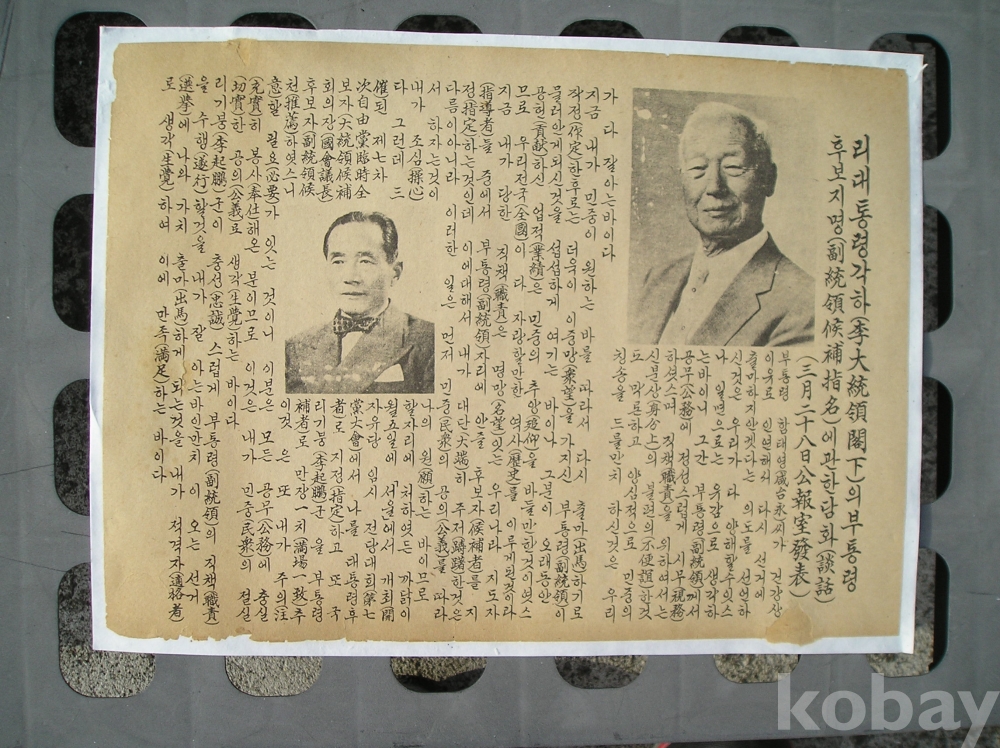 리대통령각하(李大統領閣下)의부통령
후보지명(副統領候補指名)에관한담화(談話)
(三月二十八日公報室發表)
부통령 함태영(咸台永)씨가 건강상
이유로 인연해서 다시 선거에
출마하지안켓다는 의도를 선언하
신것은 우리가 다 양해할수잇스
나 일면으로는 유감으로 생각하
는바이니 그간 부통령(副統領)께서
공무(公務)에 정성스럽게 시무(視務)
하셧스며 직책(職責)을 위하여서는
신분상(身分上)의 불편의 한것
도 막론하고 양심적으로 민중의
칭송을 드를만치 하신것은 우리
가 다 잘아는바이다
지금 내가 민중이 원하는 바를 따라서 다시 출마(出馬)하기로
작정(作定)한후로는 더욱이 이중망(衆望)을 가지신 부통령(副統領)이
물러안게되신것을 섭섭하게 여기는 바이나 그분이 오래동안
공헌(貢献)하신 업적(業績)은 민중의 추앙(推仰)을 바들만한것이엿스
므로 우리전국(全國)이 다 자랑할만한 역사(歷史)를 이루게된것이라
지금 내가 당한 직책(職責)은 명망(名望)잇는 우리나라 지도자
(指導者)들 중에서 부통령(副統領)자리에 안즐 후보자(候補者)를 지
정(指定)하는것인데 이에대해서 내가 대단(大端)히 주저(躊躇)한것은
다름이아니라 이러한 일은 먼저 민중(民衆)의 공의(公義)를 따라
서 하자는것이 나의 원(願)하는 바이므로
내가 조심(操心) 할자리에 처하엿든 까닭이
다 그런데 三 월五일에 「서울」에서 개최(開
催)된 제七차 자유당 임시 전당대회(第七
次自由黨臨時全 黨大會)에서 나를 대통령후
보자(大統領候補 者)로 지정(指定)하고 또 국
회의장(國會議長) 리기붕(李起鵬)군 을 부통령
후보자(副統領候 補者)로 만장一치(滿場一致)추
천(推薦)하엿스니 이것은 또 내가 주의(注
意)할 필요(必要)가 잇는 것이니 이분은 모든 공무(公務)에 충실
(充實)히 봉사(奉仕)해온 분이므로 이것은 내가 민중(民衆)의 절실
(切實)한 공의(公義)로 생각(生覺)하는 바이다
리기붕(李起鵬)군이 충성(忠誠)스럽게 부통령(副統領)의 직책(職責)
을 수행(遂行)할것을 내가 잘 아는바인만치 이 오는 선거
(選擧)에 나와 가치 출마(出馬)하게 되는것을 내가 적격자(適格者)
로 생각(生覺)하여 이에 만족(滿足)하는 바이다
kobay